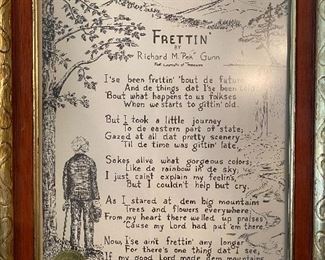 FRETTIN'
BY
Richard M. "Pek" Gunn
Poet Laureate of Tennessee
I'se been frettin' 'bout de future
And de things dat I'se been told,
'Bout what happens to us folkses
When we starts to gittin' old.
But I took a little journey
To de eastern part of state;
Gazed at all dat pretty scenery
'Til de time was gittin' late.
Sakes alive what gorgeous colors;
Like de rainbow in de sky,
I just caint explain my feelin's,
But I couldn't help but cry.
As I stared at dem big mountains
Trees and flowers everywhere,
From my heart there welled up praises
Cause my Lord had put 'em there.
Now, I'se ain't frettin' any longer
For there's one thing dat I see,
If my good Lord made dem mountains